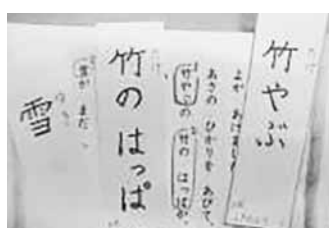 竹やぶ
よが あけました。
あさの ひかりを あびて、
竹やぶの 竹の はっぱが、
竹の はっぱ
雪が まだ
雪